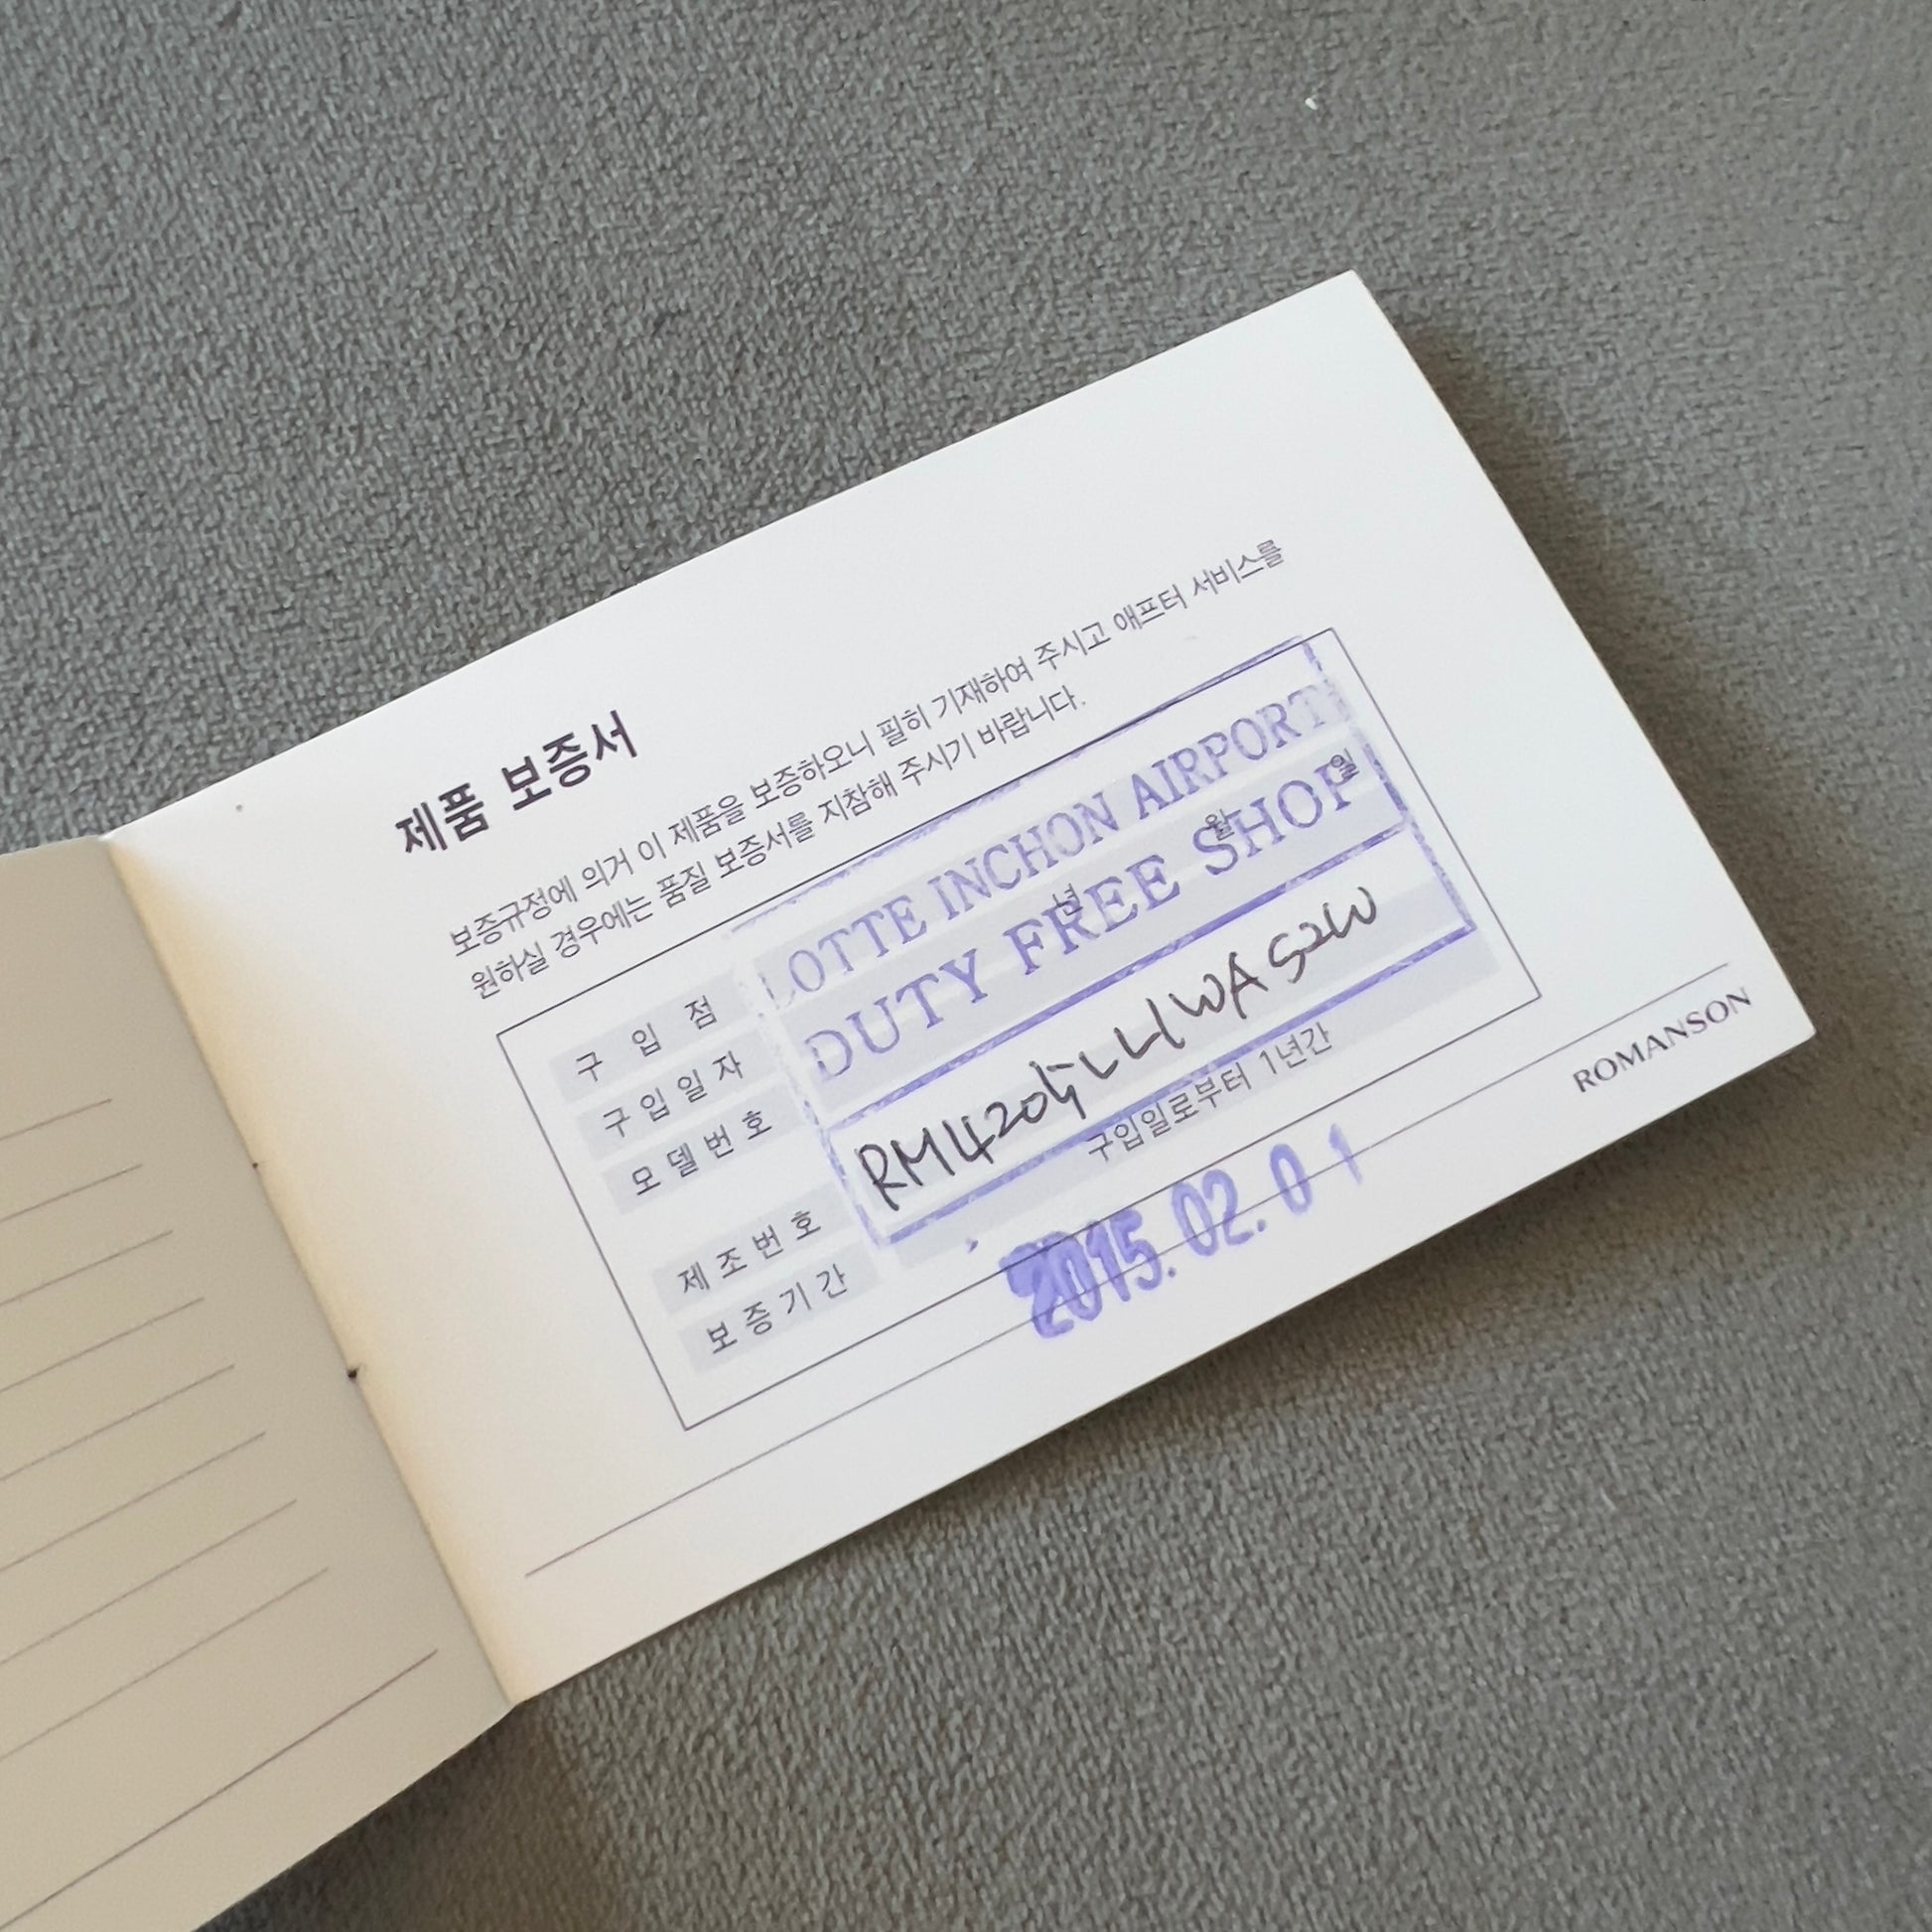 제품 보증서
보증규정에 의거 이 제품을 보증하오니 필히 기재하여 주시고 애프터 서비스를
원하실 경우에는 품질 보증서를 지참해 주시기 바랍니다.
구 입 점 LOTTE INCHON AIRPORT
구입일자 년 월 일
DUTY FREE SHOP
모델번호
제조번호
보증기간 구입일로부터 1년간
2015.02.01
ROMANSON